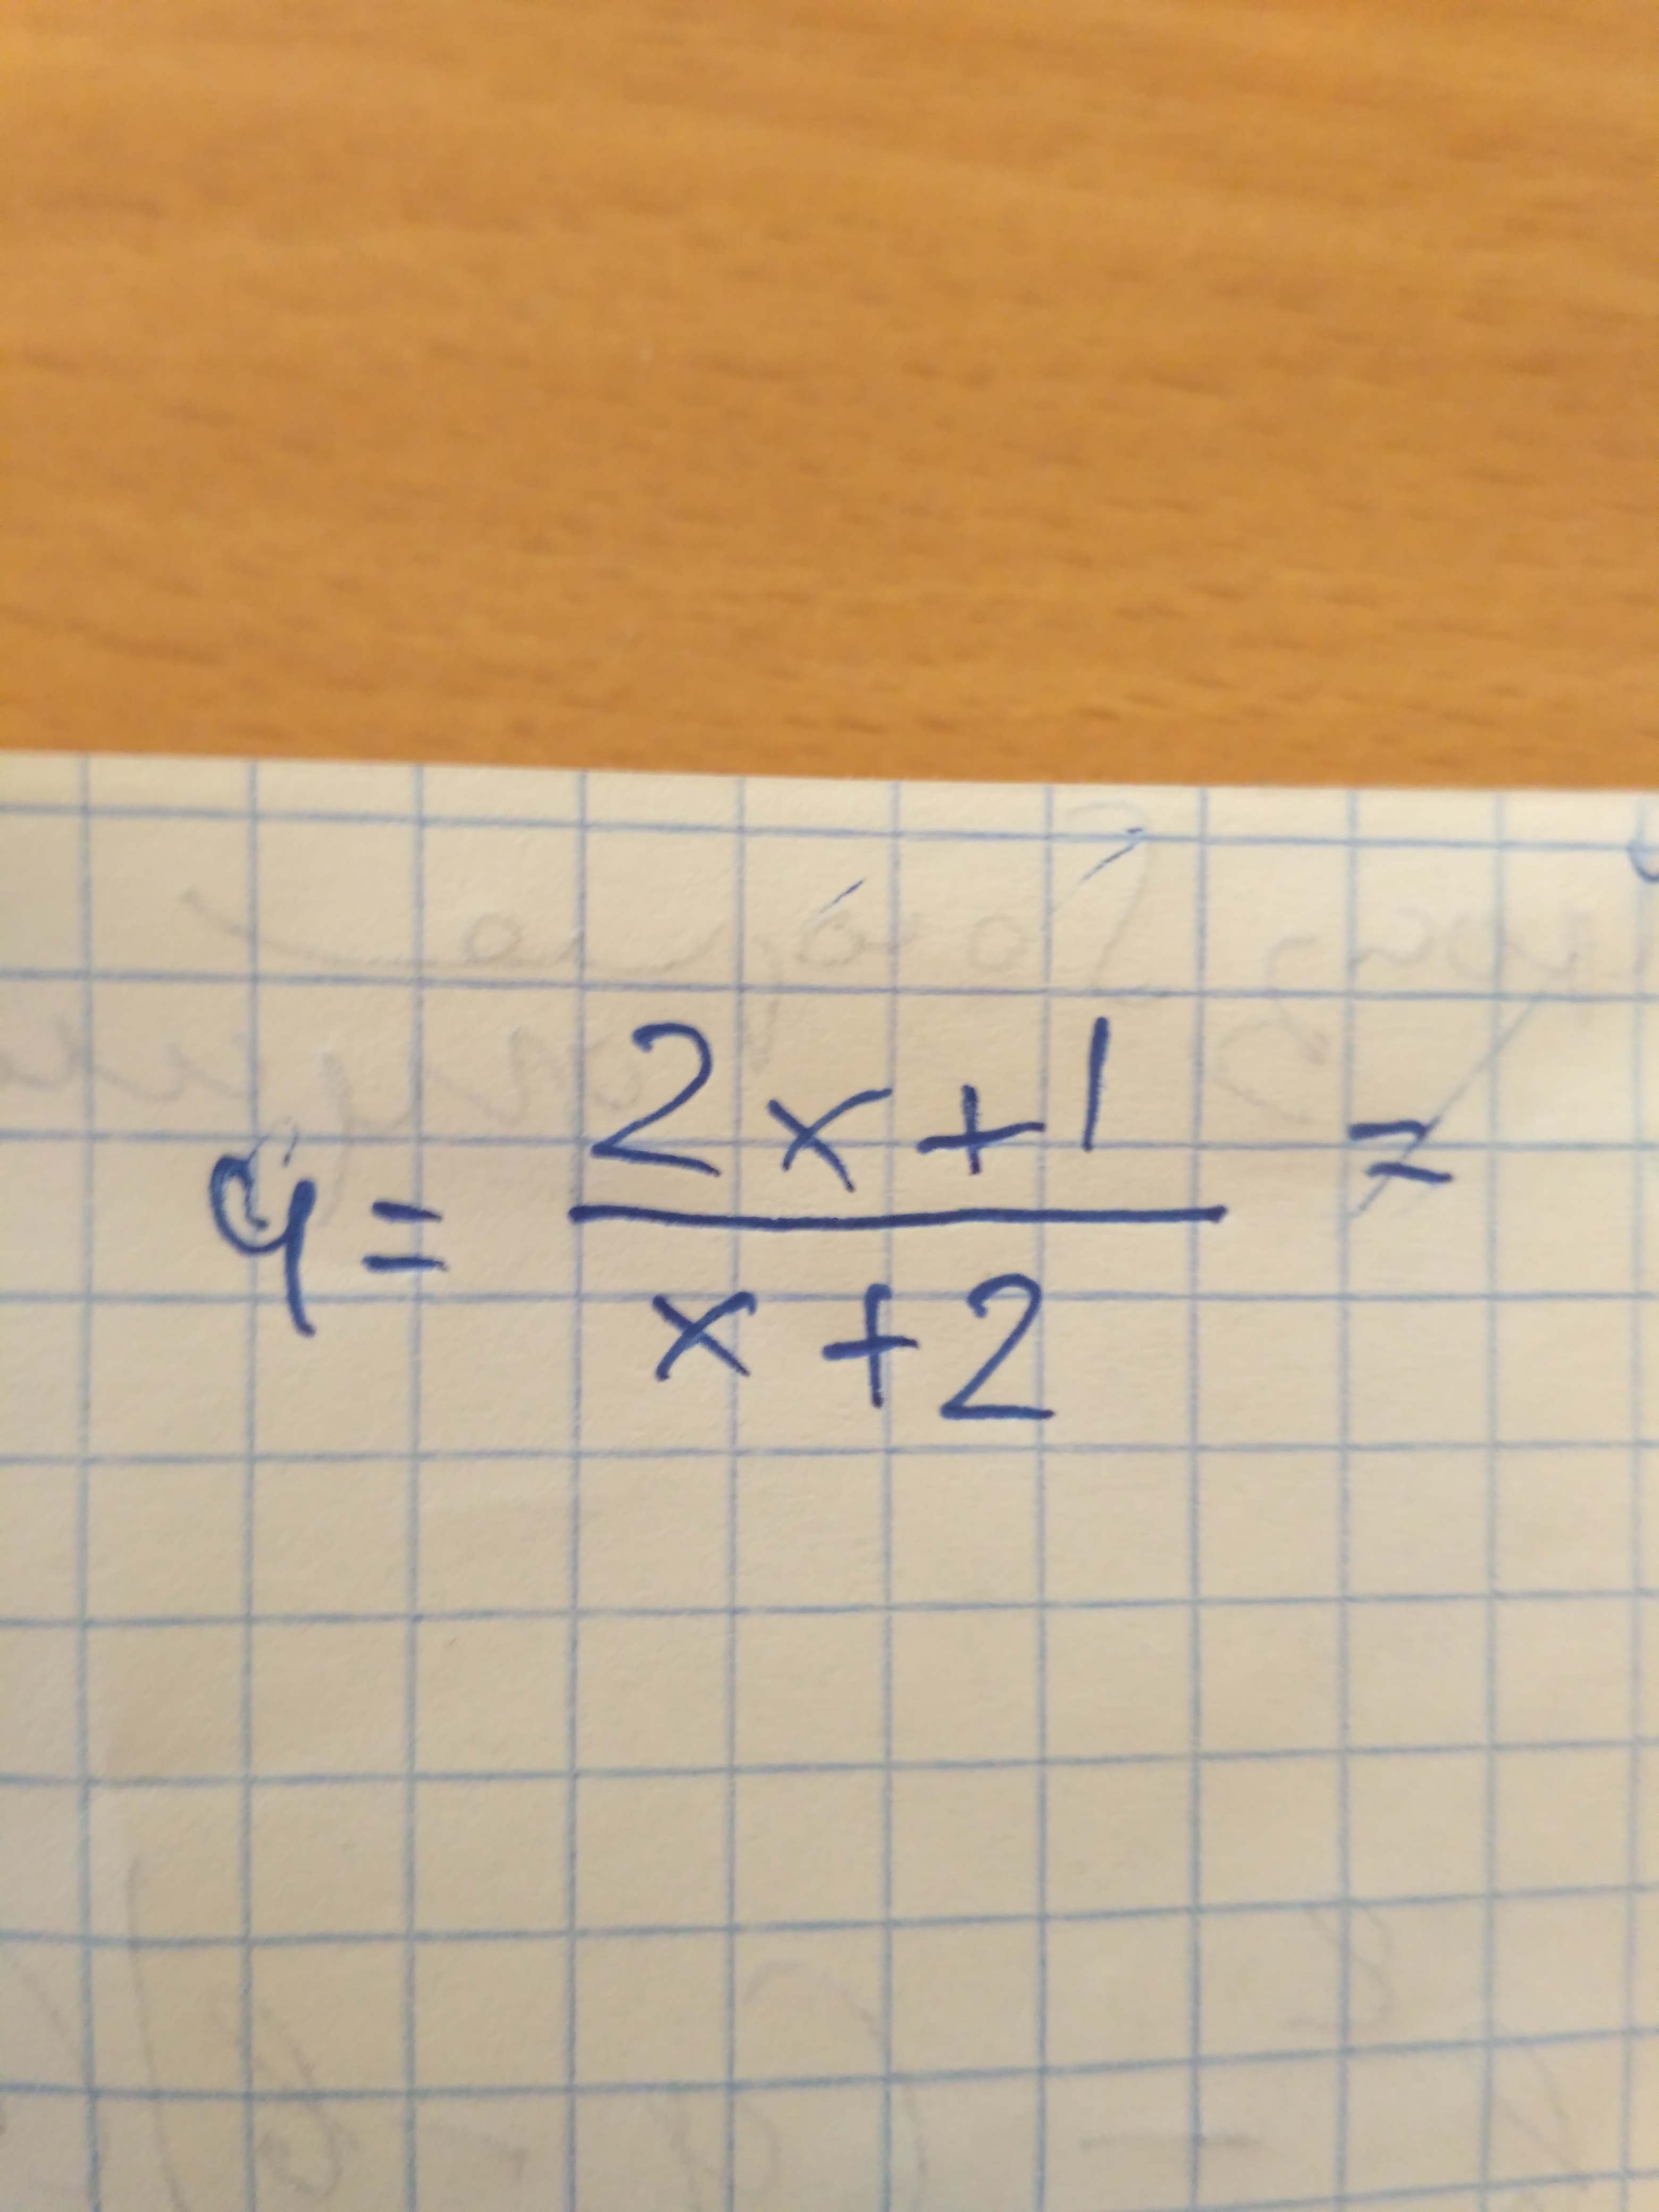 y = (2x+1)/(x+2) =